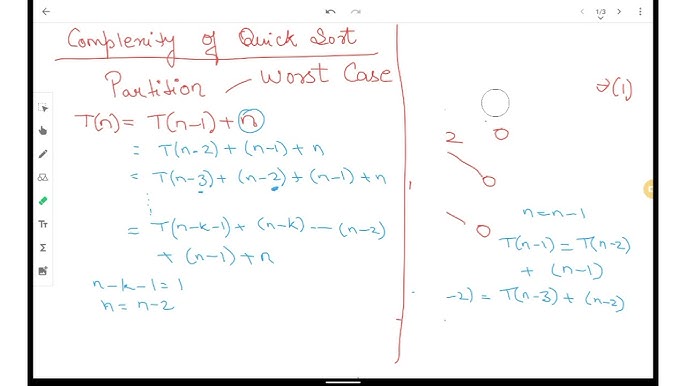 1/3
Complexity of Quick Sort
Partition — Worst Case
T(n) = T(n-1) + n
= T(n-2) + (n-1) + n
= T(n-3) + (n-2) + (n-1) + n
= T(n-k-1) + (n-k) --- (n-2)
+ (n-1) + n
n-k-1 = 1
n = n-2
TT
Σ
(1)
2 0
0
0
n = n-1
T(n-1) = T(n-2)
+ (n-1)
-2) = T(n-3) + (n-2)